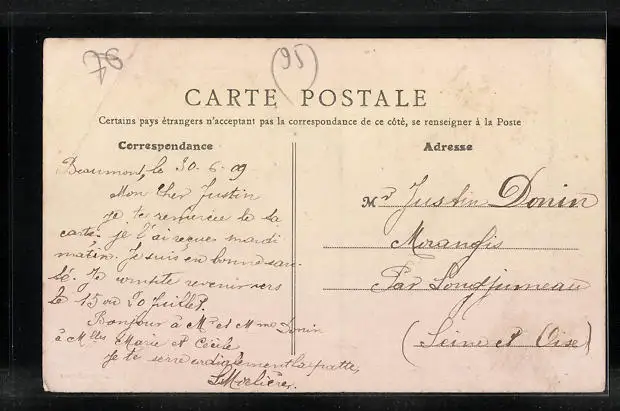 76
(95)
CARTE POSTALE
Certains pays étrangers n'acceptant pas la correspondance de ce côté, se renseigner à la Poste
Correspondance
Beaumont, le 30-6-09
Mon cher Justin
je te remercie de ta
carte. je l'ai reçue mardi
matin. Je suis en bonne san-
té. Je compte revenir vers
le 15 ou 20 Juillet.
Bonjour à Mr et Mme Donin
à Melles Marie et Cécile
je te serre cordialement la patte,
Adresse
Mr Justin Donin
Morangis
Par Londjumeau
(Seine et Oise)